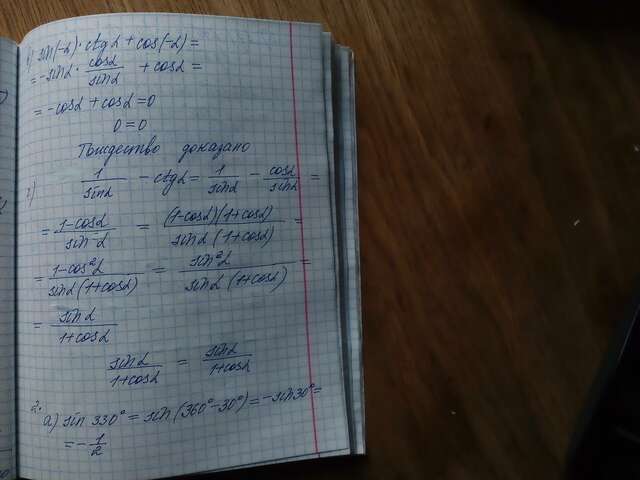 1) sin(-α)·ctgα + cos(-α) =
= -sinα · cosα/sinα + cosα =
= -cosα + cosα = 0
0 = 0
Тождество доказано
2) 1/sinα - ctgα = 1/sinα - cosα/sinα =
= 1-cosα/sinα = (1-cosα)(1+cosα)/sinα(1+cosα) =
= 1-cos²α/sinα(1+cosα) = sin²α/sinα(1+cosα) =
= sinα/1+cosα
sinα/1+cosα = sinα/1+cosα
2.
а) sin 330° = sin(360°-30°) = -sin30° =
= -1/2